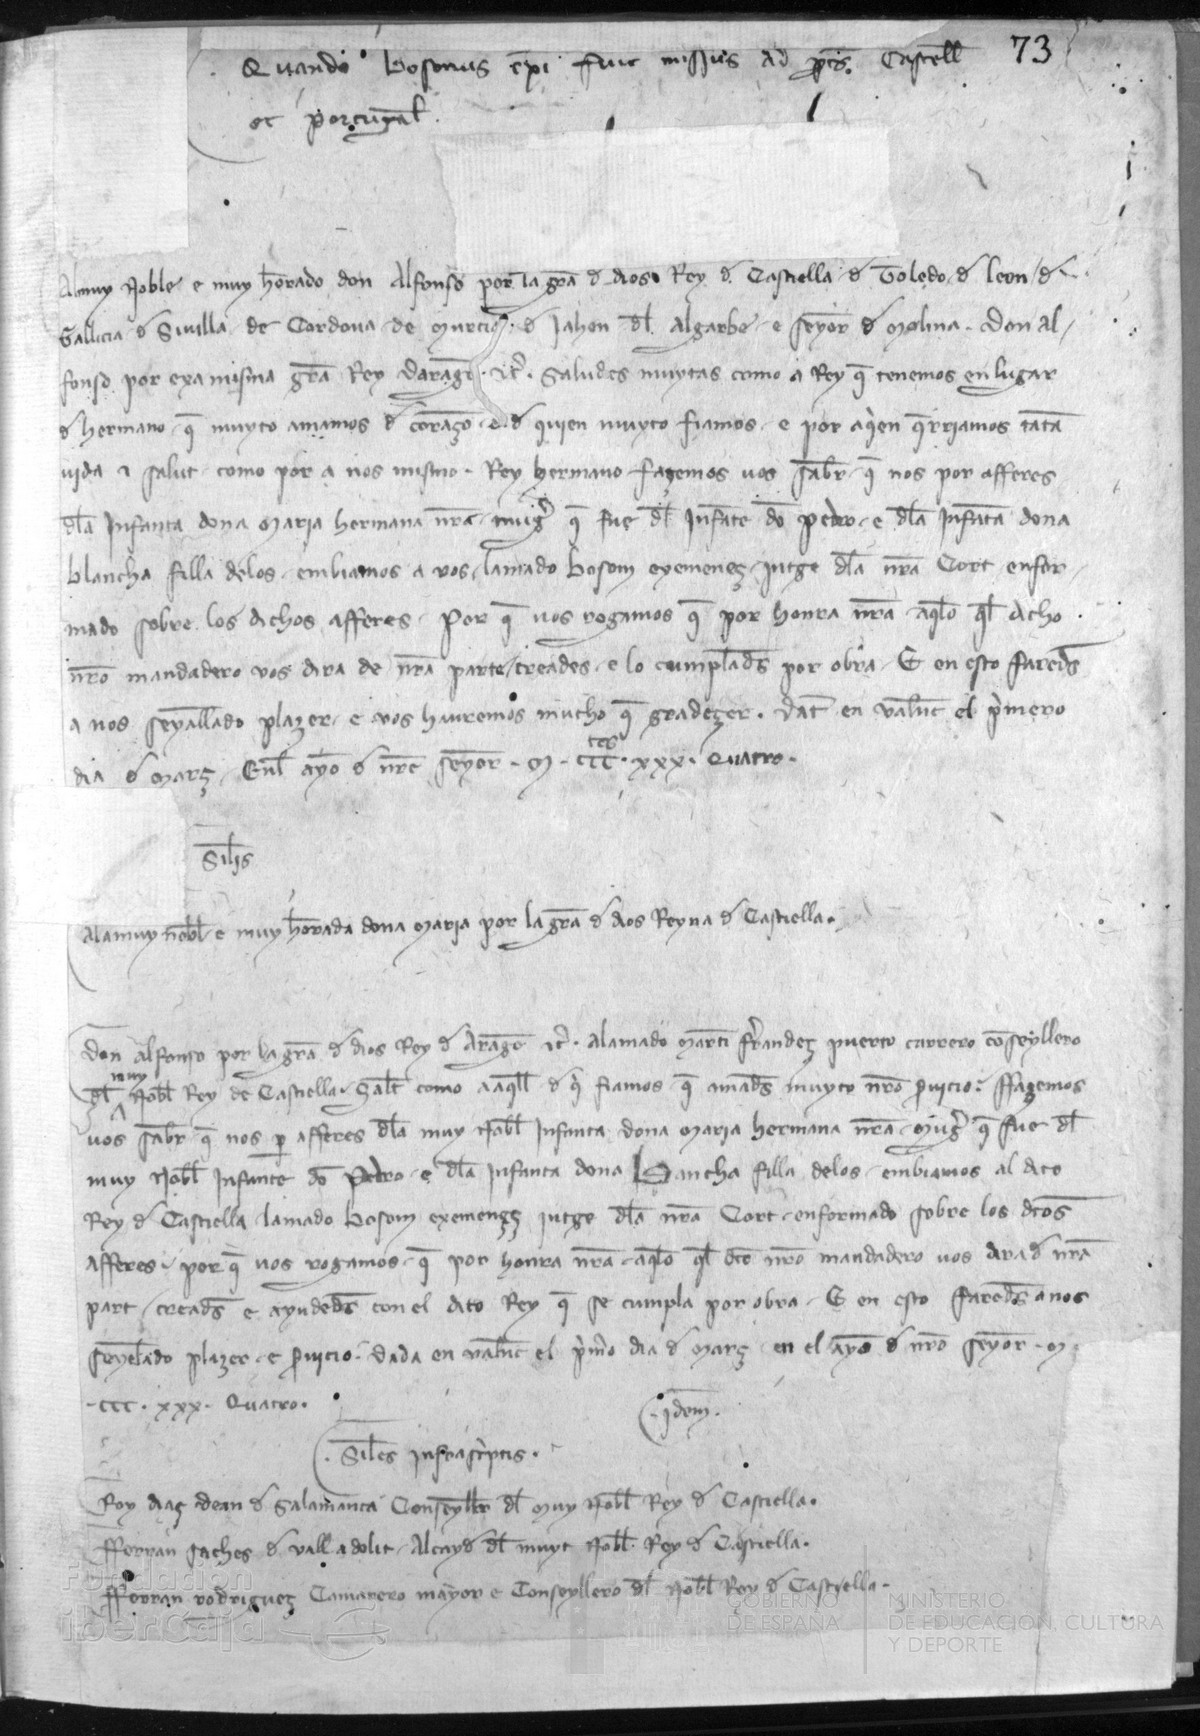 73
Quando bosonus exĩi fuit missus ad ptes. Castell
et portugal.
Al muy Noble e muy hõrado don Alfonso por la grã d dios Rey d Castiella d Toledo d leon d
Gallicia d Sivilla de Cordova de Murcia d Jahen dl Algarbe e seyõr d Molina. Don Al
fonso por exa misma grã Rey daragõ etc. Saludes muytas como a Rey q̃ tenemos en lugar
d hermano q̃ muyto amamos d coraçõ e d quien muyto fiamos e por aqien q̃rriamos tãta
vida e salut como por a nos mismo. Rey hermano fazemos vos sabr q̃ nos por afferes
dla Infanta dona Maria hermana nr̃a mugr̃ q̃ fue dl Infate dõ pedro e dla Infãta dona
blancha filla delos embiamos a vos lamado boson exemeneç jutge dla nr̃a Cort enfor
mado sobre los dichos afferes. Por q̃ vos rogamos q̃ por honra nr̃a aqlo ql dicho
nr̃o mandadero vos dira de nr̃a parte creades e lo cumplads por obra. E en esto fareds
a nos seyallado plazer e vos hauremos mucho q̃ gradeçer. Dat en valẽc el p̃mero
dia d março Enl ayõ d nr̃e seyõr M. CCC. XXX. Quatro.
Silis
Ala muy nobl e muy hõrada dona Maria por la grã d dios Reyna d Castiella.
Don alfonso por la grã d dios Rey d Aragõ etc. Al amado Marti frãndeç puerto carrero cõseyllero
dl muy Nobl Rey de Castiella. Salt como a aqll d q̃ fiamos q̃ amads muyto nr̃o p̃uicio. ffazemos
vos sabr q̃ nos p afferes dla muy Nobl Infanta dona Maria hermana nr̃a mugr̃ q̃ fue dl
muy Nobl Infante dõ Pedro e dla Infanta dona Blancha filla delos embiamos al dito
Rey d Castiella lamado boson exemeneç jutge dla nr̃a Cort enformado sobre los dtos
afferes por q̃ vos rogamos q̃ por honra nr̃a aqlo ql dto nr̃o mandadero vos dira d nr̃a
part creads e ayudeds con el dito Rey q̃ se cumpla por obra. E en esto fareds a nos
seyelado plazer e p̃uicio. Dada en valẽc el p̃mo dia d março en el ayõ d nr̃o seyõr M.
CCC. XXX. Quatro.
Idem.
Siles infrascriptis.
Roy diaç dean d Salamanca Conseyllr dl Muy Nobl Rey d Castiella.
fferran sãches d valladolit Alcayd dl muyt Nobl Rey d Castiella.
fferran rodrigueç Camarero mayor e Conseyllero dl Nobl Rey d Castiella.
Fundación
iberCaja
GOBIERNO
DE ESPAÑA
MINISTERIO
DE EDUCACIÓN, CULTURA
Y DEPORTE